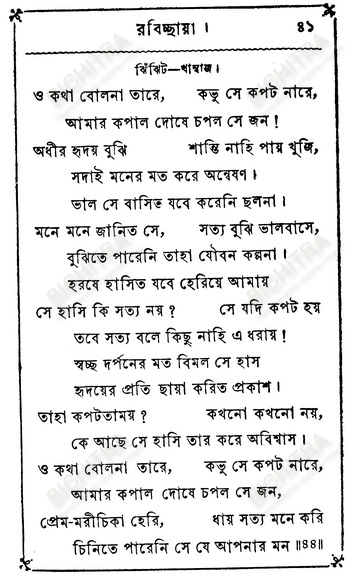 রবিচ্ছায়া। ৪১
ঝিঁঝিট—খাম্বাজ।
ও কথা বোলনা তারে, কভু সে কপট নারে,
আমার কপাল দোষে চপল সে জন!
অধীর হৃদয় বুঝি শান্তি নাহি পায় খুজি,
সদাই মনের মত করে অন্বেষণ।
ভাল সে বাসিত যবে করেনি ছলনা।
মনে মনে জানিত সে, সত্য বুঝি ভালবাসে,
বুঝিতে পারেনি তাহা যৌবন কল্পনা।
হরষে হাসিত যবে হেরিয়ে আমায়
সে হাসি কি সত্য নয়? সে যদি কপট হয়
তবে সত্য বলে কিছু নাহি এ ধরায়!
স্বচ্ছ দর্পনের মত বিমল সে হাস
হৃদয়ের প্রতি ছায়া করিত প্রকাশ।
তাহা কপটতাময়? কখনো কখনো নয়,
কে আছে সে হাসি তার করে অবিশ্বাস।
ও কথা বোলনা তারে, কভু সে কপট নারে,
আমার কপাল দোষে চপল সে জন,
প্রেম-মরীচিকা হেরি, ধায় সত্য মনে করি
চিনিতে পারেনি সে যে আপনার মন॥৪৪॥
BICHITRA